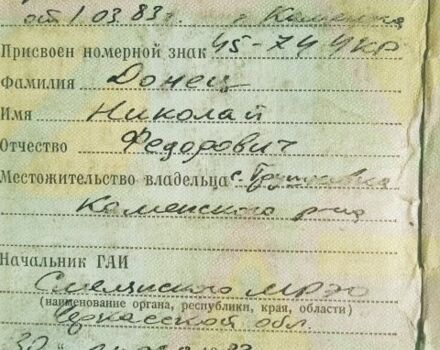 от 1.03.83 г. г. Каменка
Присвоен номерной знак 45-74 ЧКР
Фамилия Донец
Имя Николай
Отчество Федорович
Местожительство владельца с.
Каменского р-на
Начальник ГАИ
Смелянского МРЭО
(наименование органа, республики, края, области)
Черкасской обл.
30